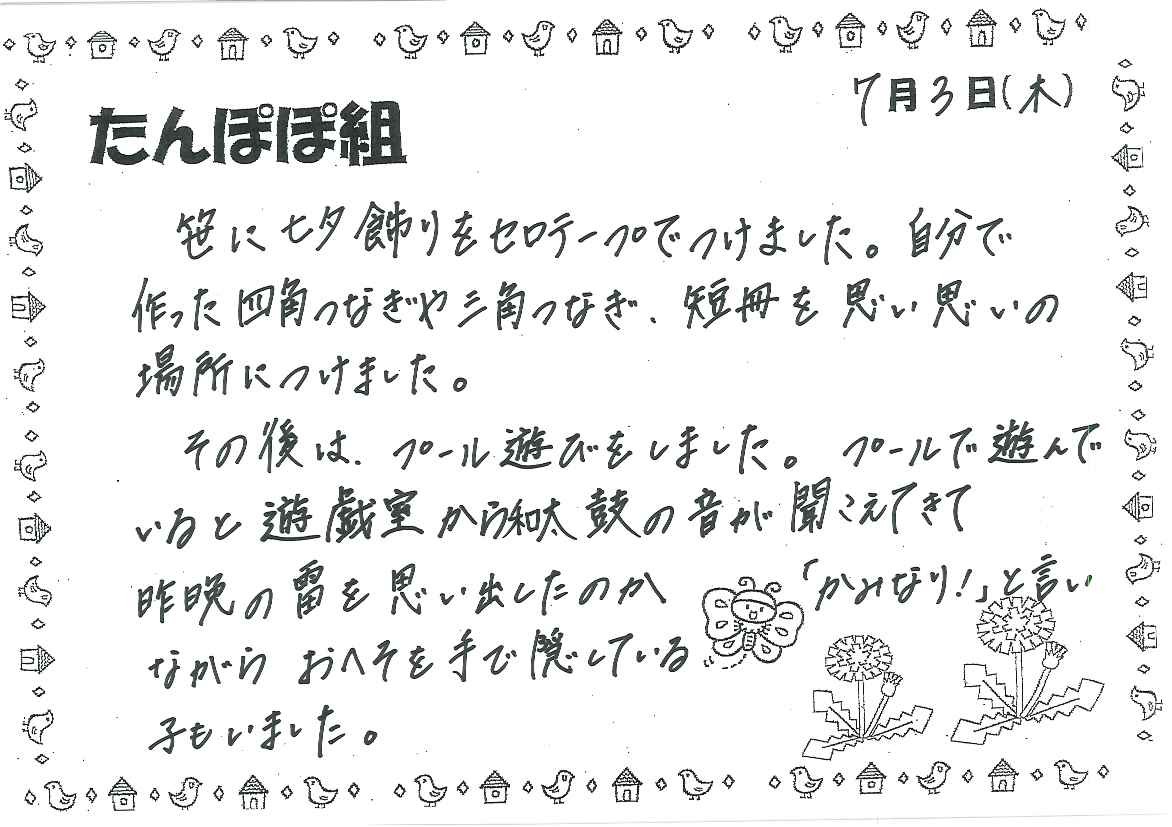 7月3日(木)
たんぽぽ組
笹に七夕飾りをセロテープでつけました。自分で
作った四角つなぎや三角つなぎ、短冊を思い思いの
場所につけました。
その後は、プール遊びをしました。プールで遊んで
いると遊戯室から和太鼓の音が聞こえてきて
昨晩の雷を思い出したのか「かみなり!」と言い
ながらおへそを手で隠している
子もいました。